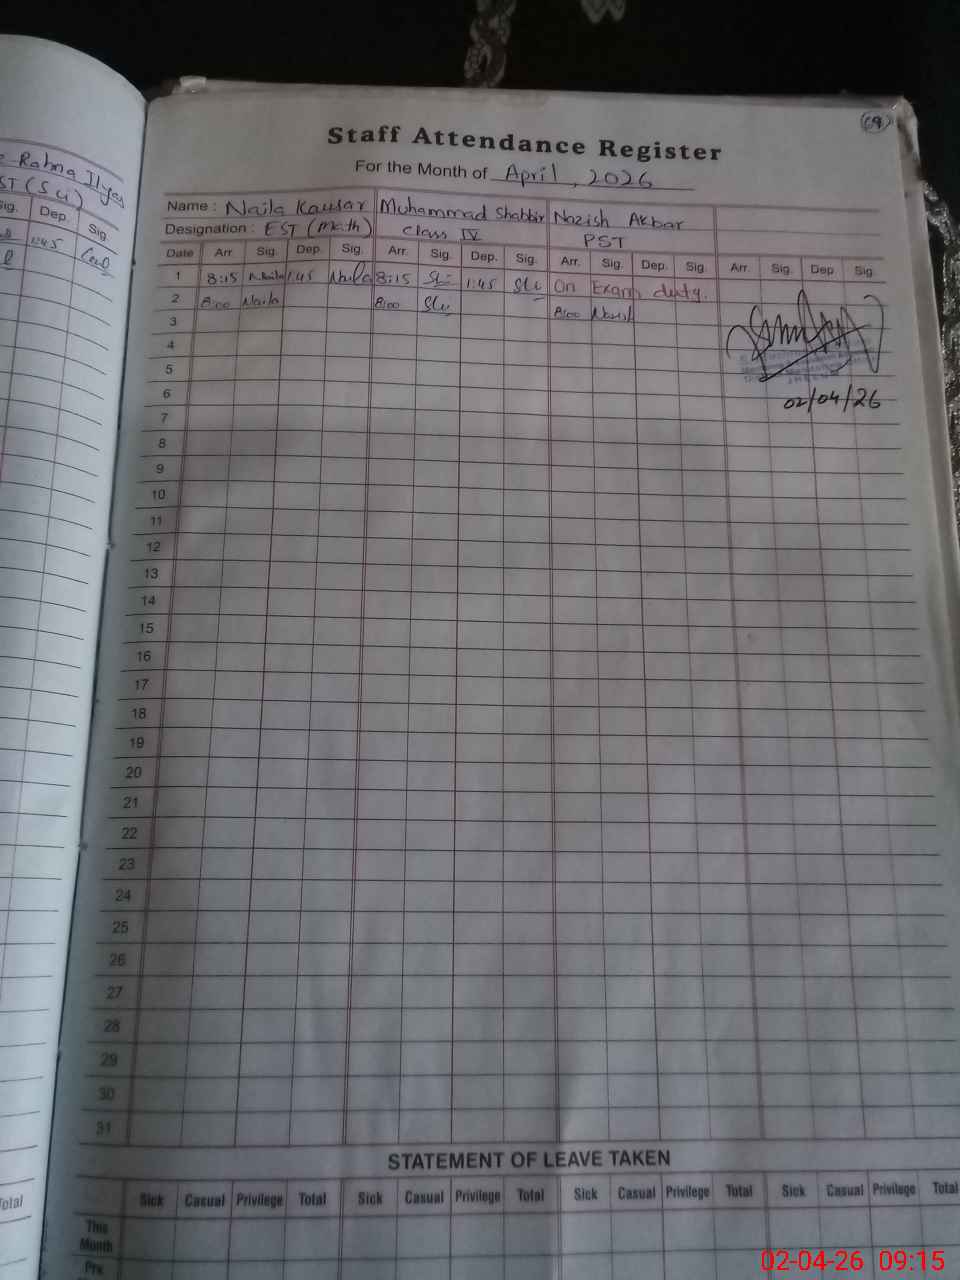 69
Staff Attendance Register
For the Month of April, 2026
Name : Naila Kausar Muhammad Shabbir Nazish Akbar
Designation : EST (Math) Class IV PST
Date Arr. Sig. Dep. Sig. Arr. Sig. Dep. Sig. Arr. Sig. Dep. Sig. Arr. Sig. Dep Sig.
1 8:15 Naila 1:45 Naila 8:15 1:45 On Exam duty.
2 8:00 Naila 8:00 8:00
3
4
5
6
02/04/26
7
8
9
10
11
12
13
14
15
16
17
18
19
20
21
22
23
24
25
26
27
28
29
30
31
STATEMENT OF LEAVE TAKEN
Sick Casual Privilege Total Sick Casual Privilege Total Sick Casual Privilege Total Sick Casual Privilege Total
This
Month
Pre
Rahna Ilyas
ST (Sci)
Sig. Dep. Sig.
1:45
Total
02-04-26 09:15